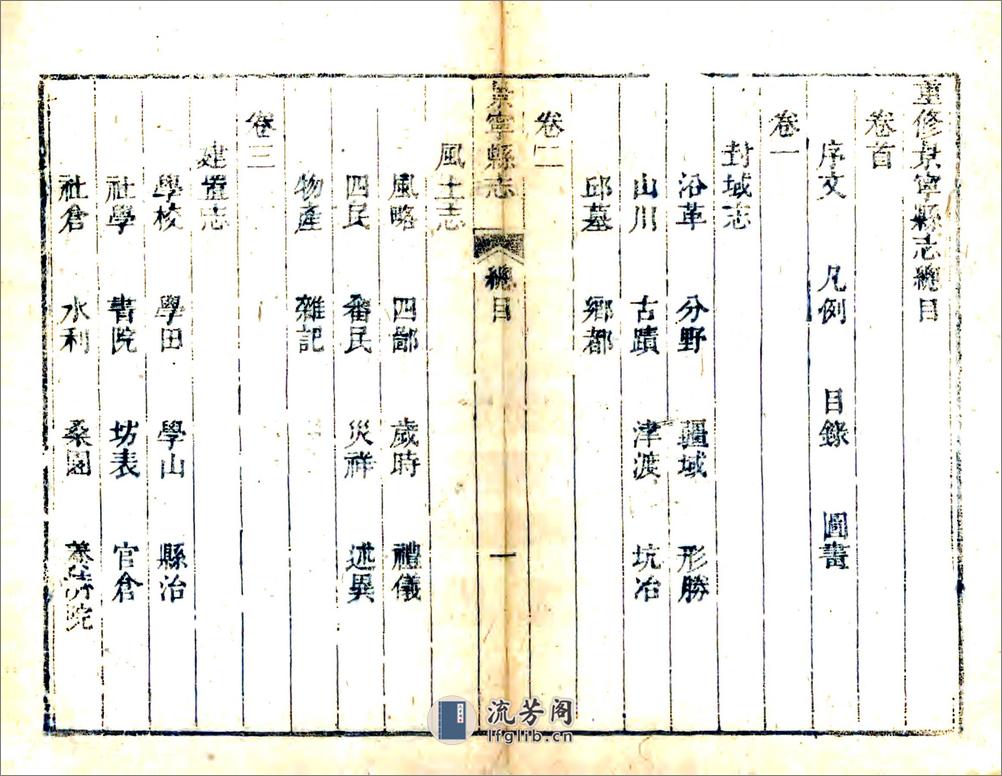 重修景寧縣志總目
卷首
序文 凡例 目錄 圖畫
卷一
封域志
沿革 分野 疆域 形勝
山川 古蹟 津渡 坑冶
邱墓 鄉都
卷二
景寧縣志 總目 一
風土志
風略 四鄙 歲時 禮儀
四民 畲民 災祥 述異
物產 雜記
卷三
建置志
學校 學田 學山 縣治
社學 書院 坊表 官倉
社倉 水利 桑園 養濟院
流芳阁
lfglib.cn